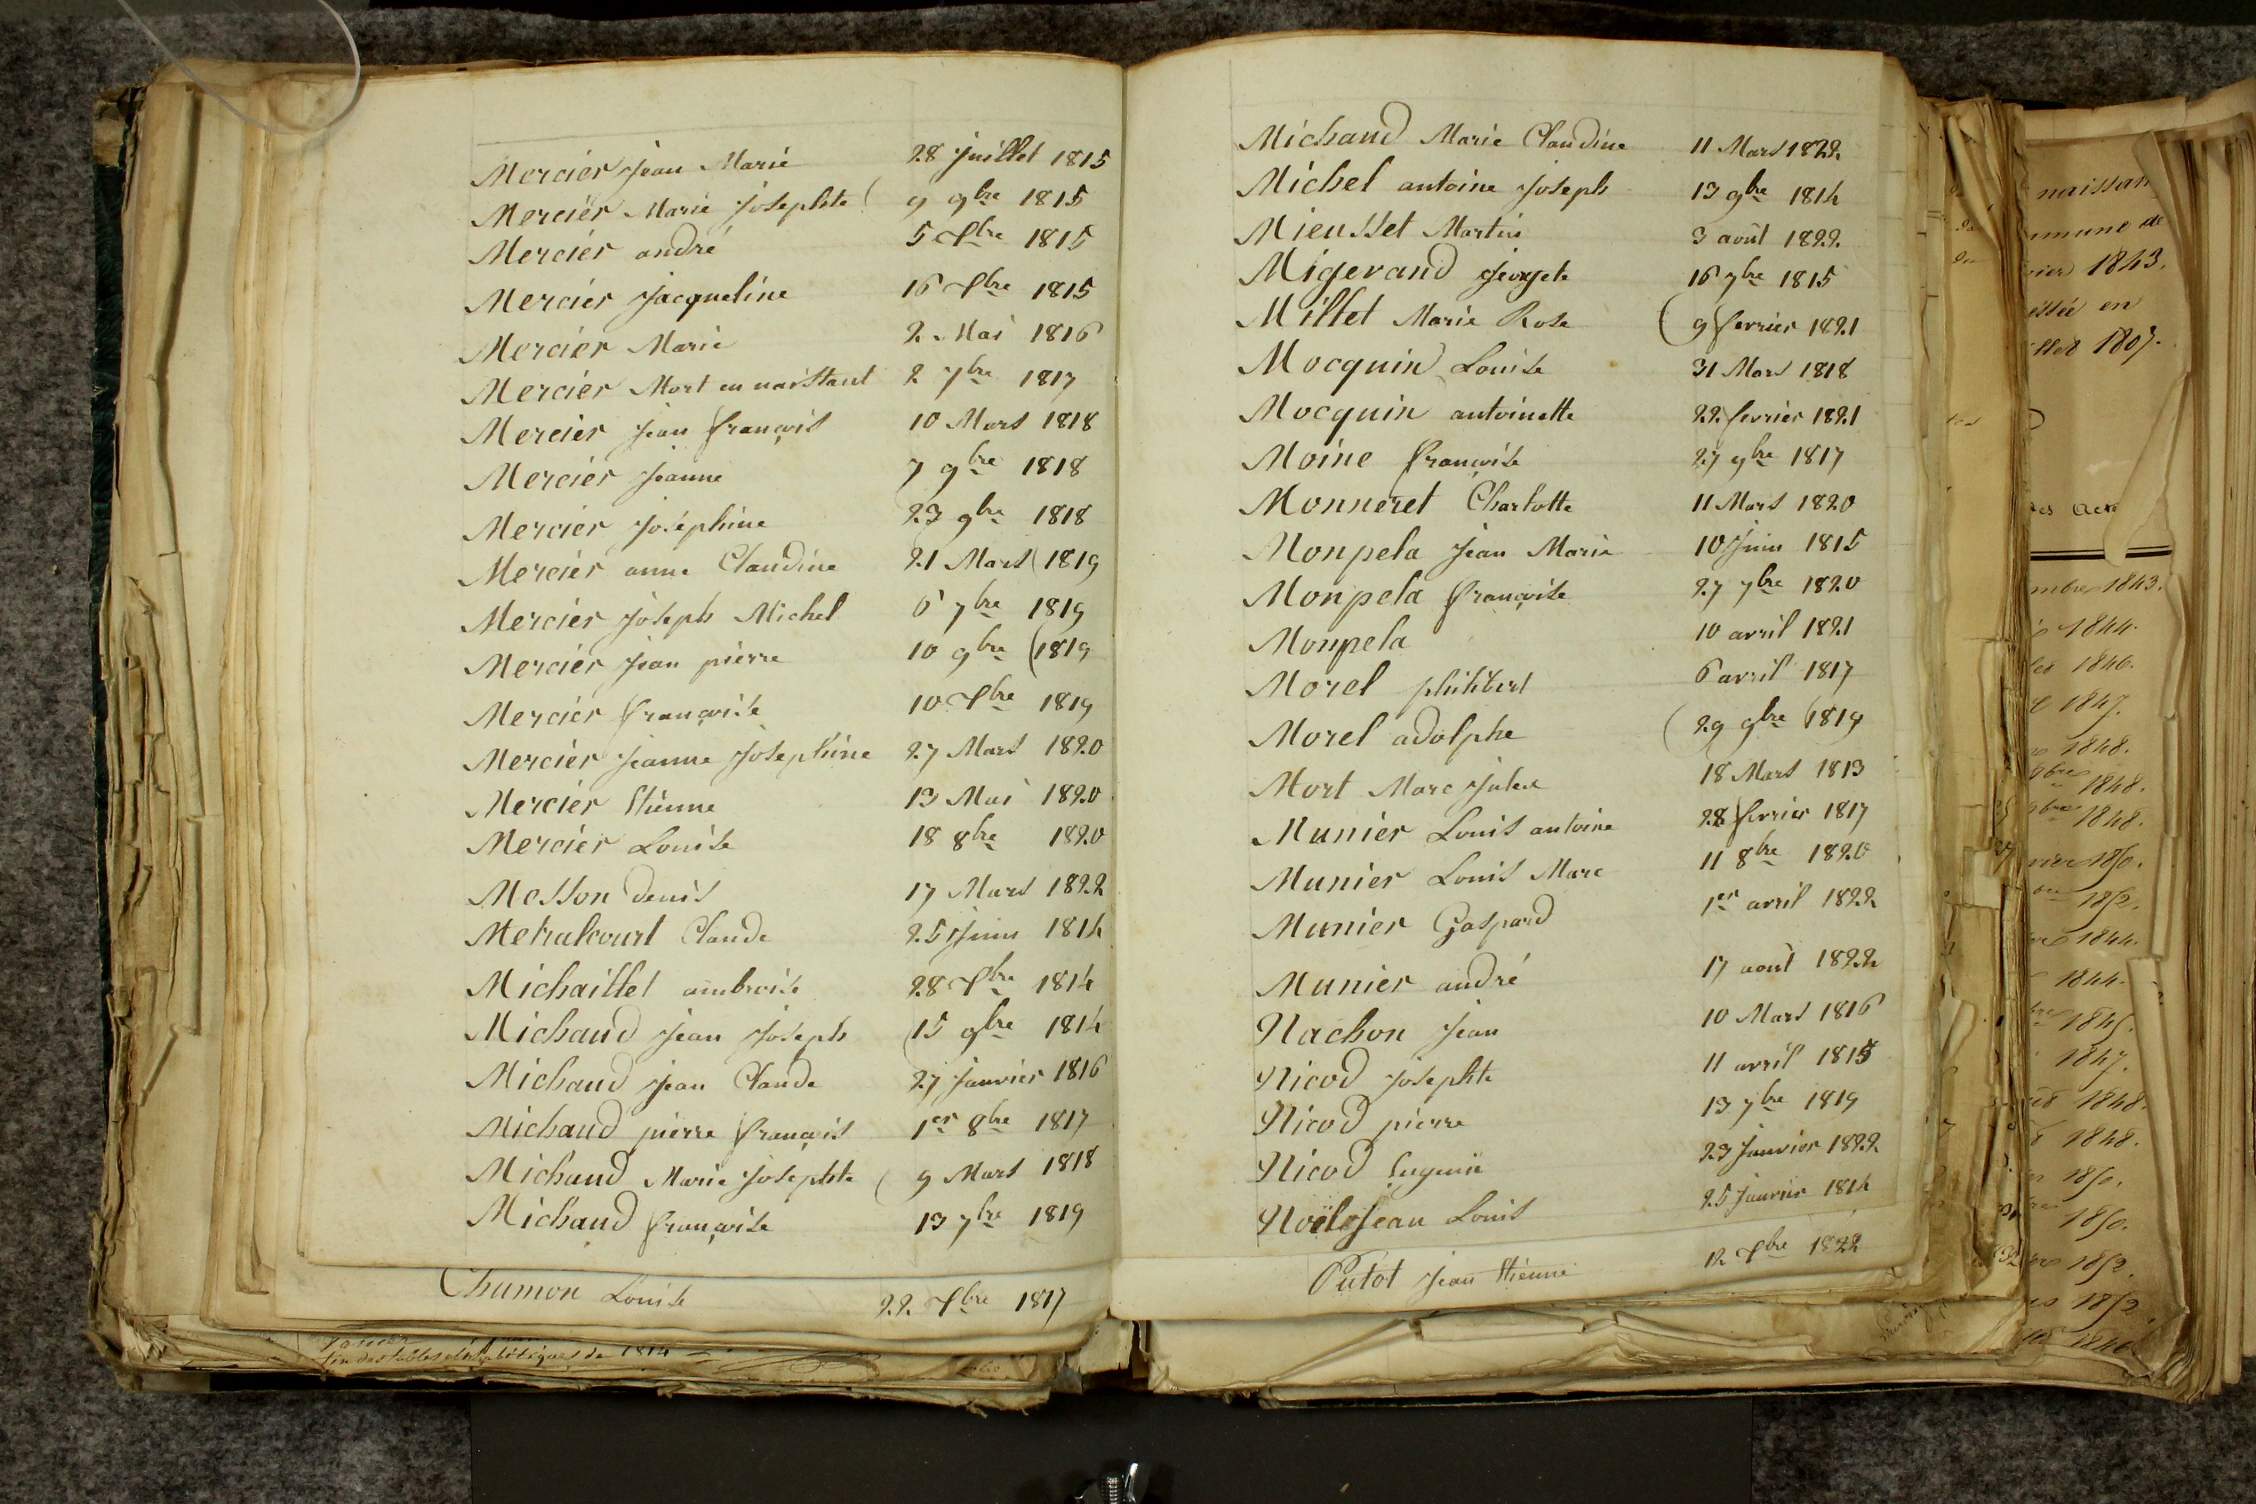 Mercier Jean Marie 28 Juillet 1815
Mercier Marie Josephte 9 9bre 1815
Mercier andré 5 Xbre 1815
Mercier Jacqueline 16 Xbre 1815
Mercier Marie 2 Mai 1816
Mercier Mort en naissant 2 7bre 1817
Mercier Jean françois 10 Mars 1818
Mercier Jeanne 7 9bre 1818
Mercier Joséphine 23 9bre 1818
Mercier anne Claudine 21 Mars 1819
Mercier Joseph Michel 6 7bre 1819
Mercier Jean pierre 10 9bre 1819
Mercier françoise 10 Xbre 1819
Mercier Jeanne Josephine 27 Mars 1820
Mercier Etienne 13 Mai 1820
Mercier Louise 18 8bre 1820
Messon denis 17 Mars 1822
Metralcourt Claude 25 Juin 1814
Michaillet ambroise 28 Xbre 1814
Michaud Jean Joseph 15 9bre 1814
Michaud Jean Claude 27 Janvier 1816
Michaud pierre françois 1er 8bre 1817
Michaud Marie Josephte 9 Mars 1818
Michaud françoise 13 7bre 1819
Chumon Louise 22 Xbre 1817
fin des tables alphabétiques de 1814
Michaud Marie Claudine 11 Mars 1822
Michel antoine Joseph 13 9bre 1814
Mieusset Martin 3 août 1822
Migerand 16 7bre 1815
Millet Marie Rose 9 fevrier 1821
Mocquin Louise 31 Mars 1818
Mocquin antoinette 22 fevrier 1821
Moine françoise 27 9bre 1817
Monneret Charlotte 11 Mars 1820
Monpela Jean Marie 10 Juin 1815
Monpela françoise 27 7bre 1820
Monpela 10 avril 1821
Morel philibert 6 avril 1817
Morel adolphe 29 9bre 1819
Mort Marc Jules 18 Mars 1813
Munier Louis antoine 28 fevrier 1817
Munier Louis Marc 11 8bre 1820
Munier Gaspard 1er avril 1822
Munier andré 17 août 1822
Nachon Jean 10 Mars 1816
Nicod Josephte 11 avril 1815
Nicod pierre 13 7bre 1819
Nicod Eugenie 23 Janvier 1822
Noël Jean Louis 25 Janvier 1814
Putot Jean Etienne 12 Xbre 1822
naissan
mmune de
vier 1843.
en
illet 1807.
mbre 1843.
1844.
1846.
1847.
1848.
9bre 1848.
9bre 1848.
1844.
1844.
1845.
1847.
1848.
1848.